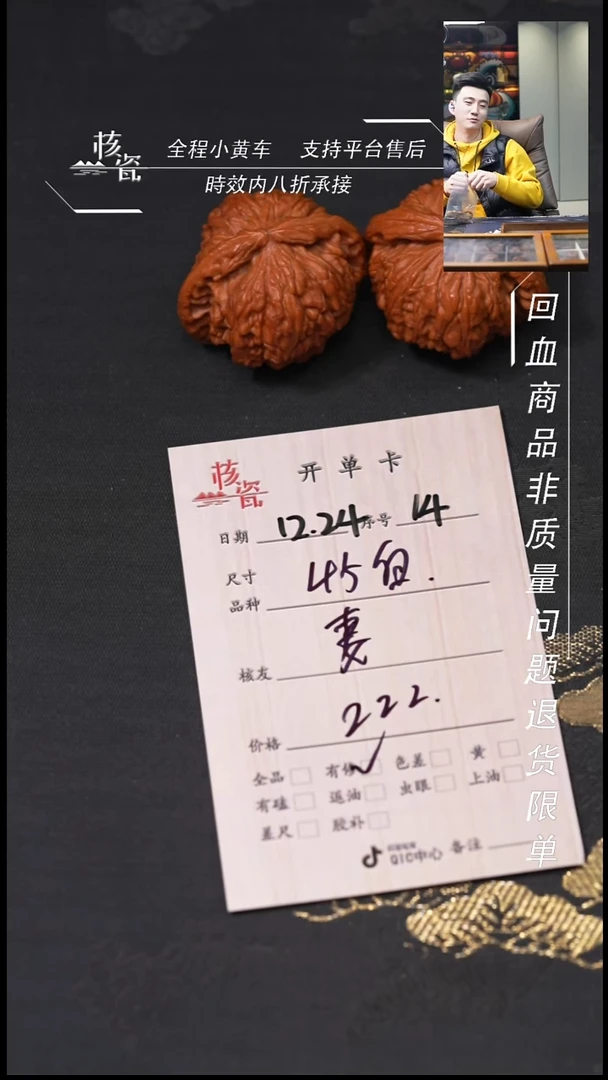 核瓷
全程小黄车 支持平台售后
時效内八折承接
回血商品非质量问题退货限单
核瓷
开单卡
日期 12.24 序号 14
尺寸
品种 45白.
核友
价格 222.
全品 有修 色差 黄
有磕 返油 虫眼 上油
差尺 胶补
QIC中心 备注